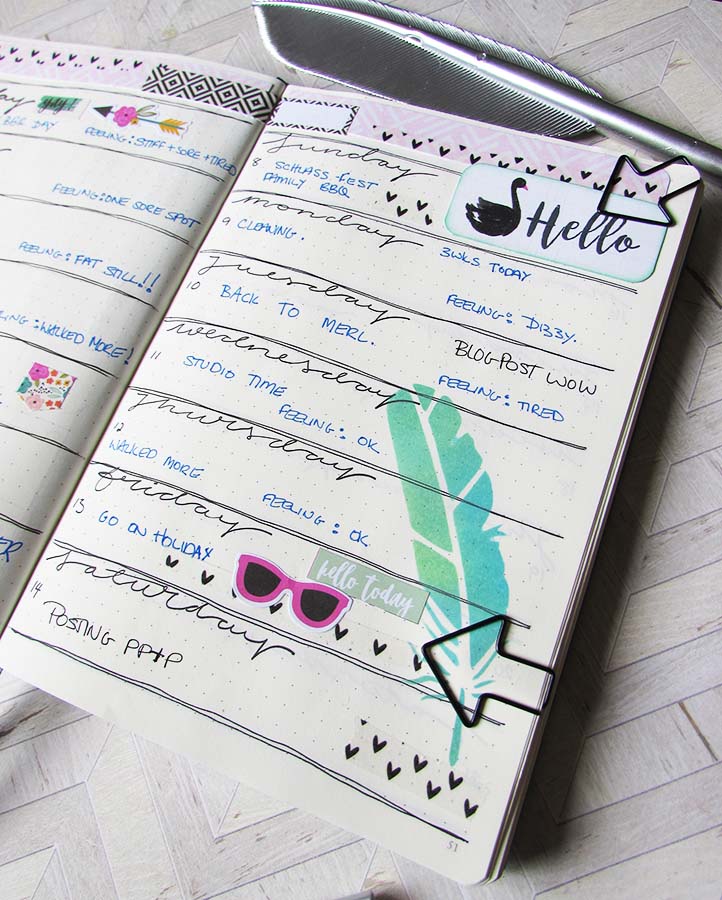 day
FEELING: STIFF + SORE + TIRED
FEELING: ONE SORE SPOT
FEELING: FAT STILL!!
WALKED MORE!
Sunday
8 SCHLASS-FEST
FAMILY BBQ
Hello
monday
9 CLEANING.
3WKS TODAY
FEELING: DIZZY.
Tuesday
10 BACK TO MERL.
BLOGPOST WOW
FEELING: TIRED
wednesday
11 STUDIO TIME
FEELING: OK
Thursday
12
WALKED MORE
FEELING: OK
friday
13 GO ON HOLIDAY
hello today
saturday
14
POSTING PP+P
51